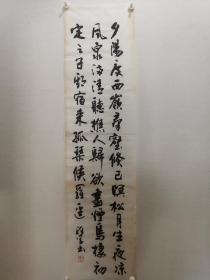 夕陽度西嶺羣壑倏已暝松月生夜凉
風泉滿清聽樵人歸欲盡煙鳥棲初
定之子期宿來孤琴候蘿逕 書